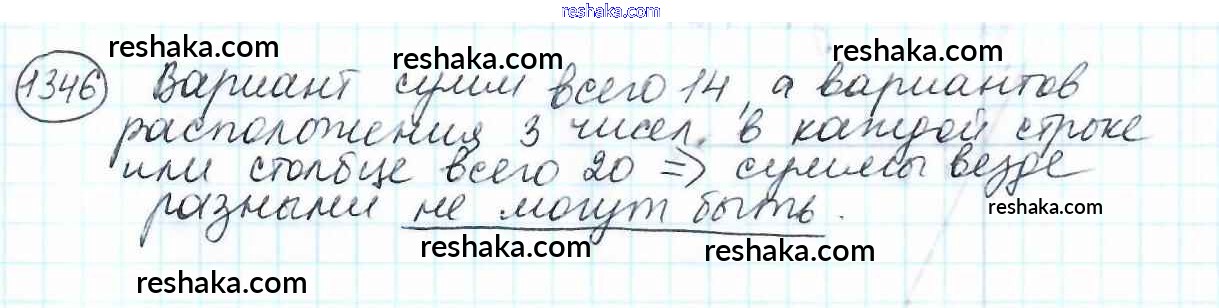 reshaka.com
reshaka.com reshaka.com reshaka.com
1346 Вариант сумм всего 14, а вариантов
расположения 3 чисел, в каждой строке
или столбце всего 20 => суммы везде
разными не могут быть.
reshaka.com
reshaka.com reshaka.com
reshaka.com